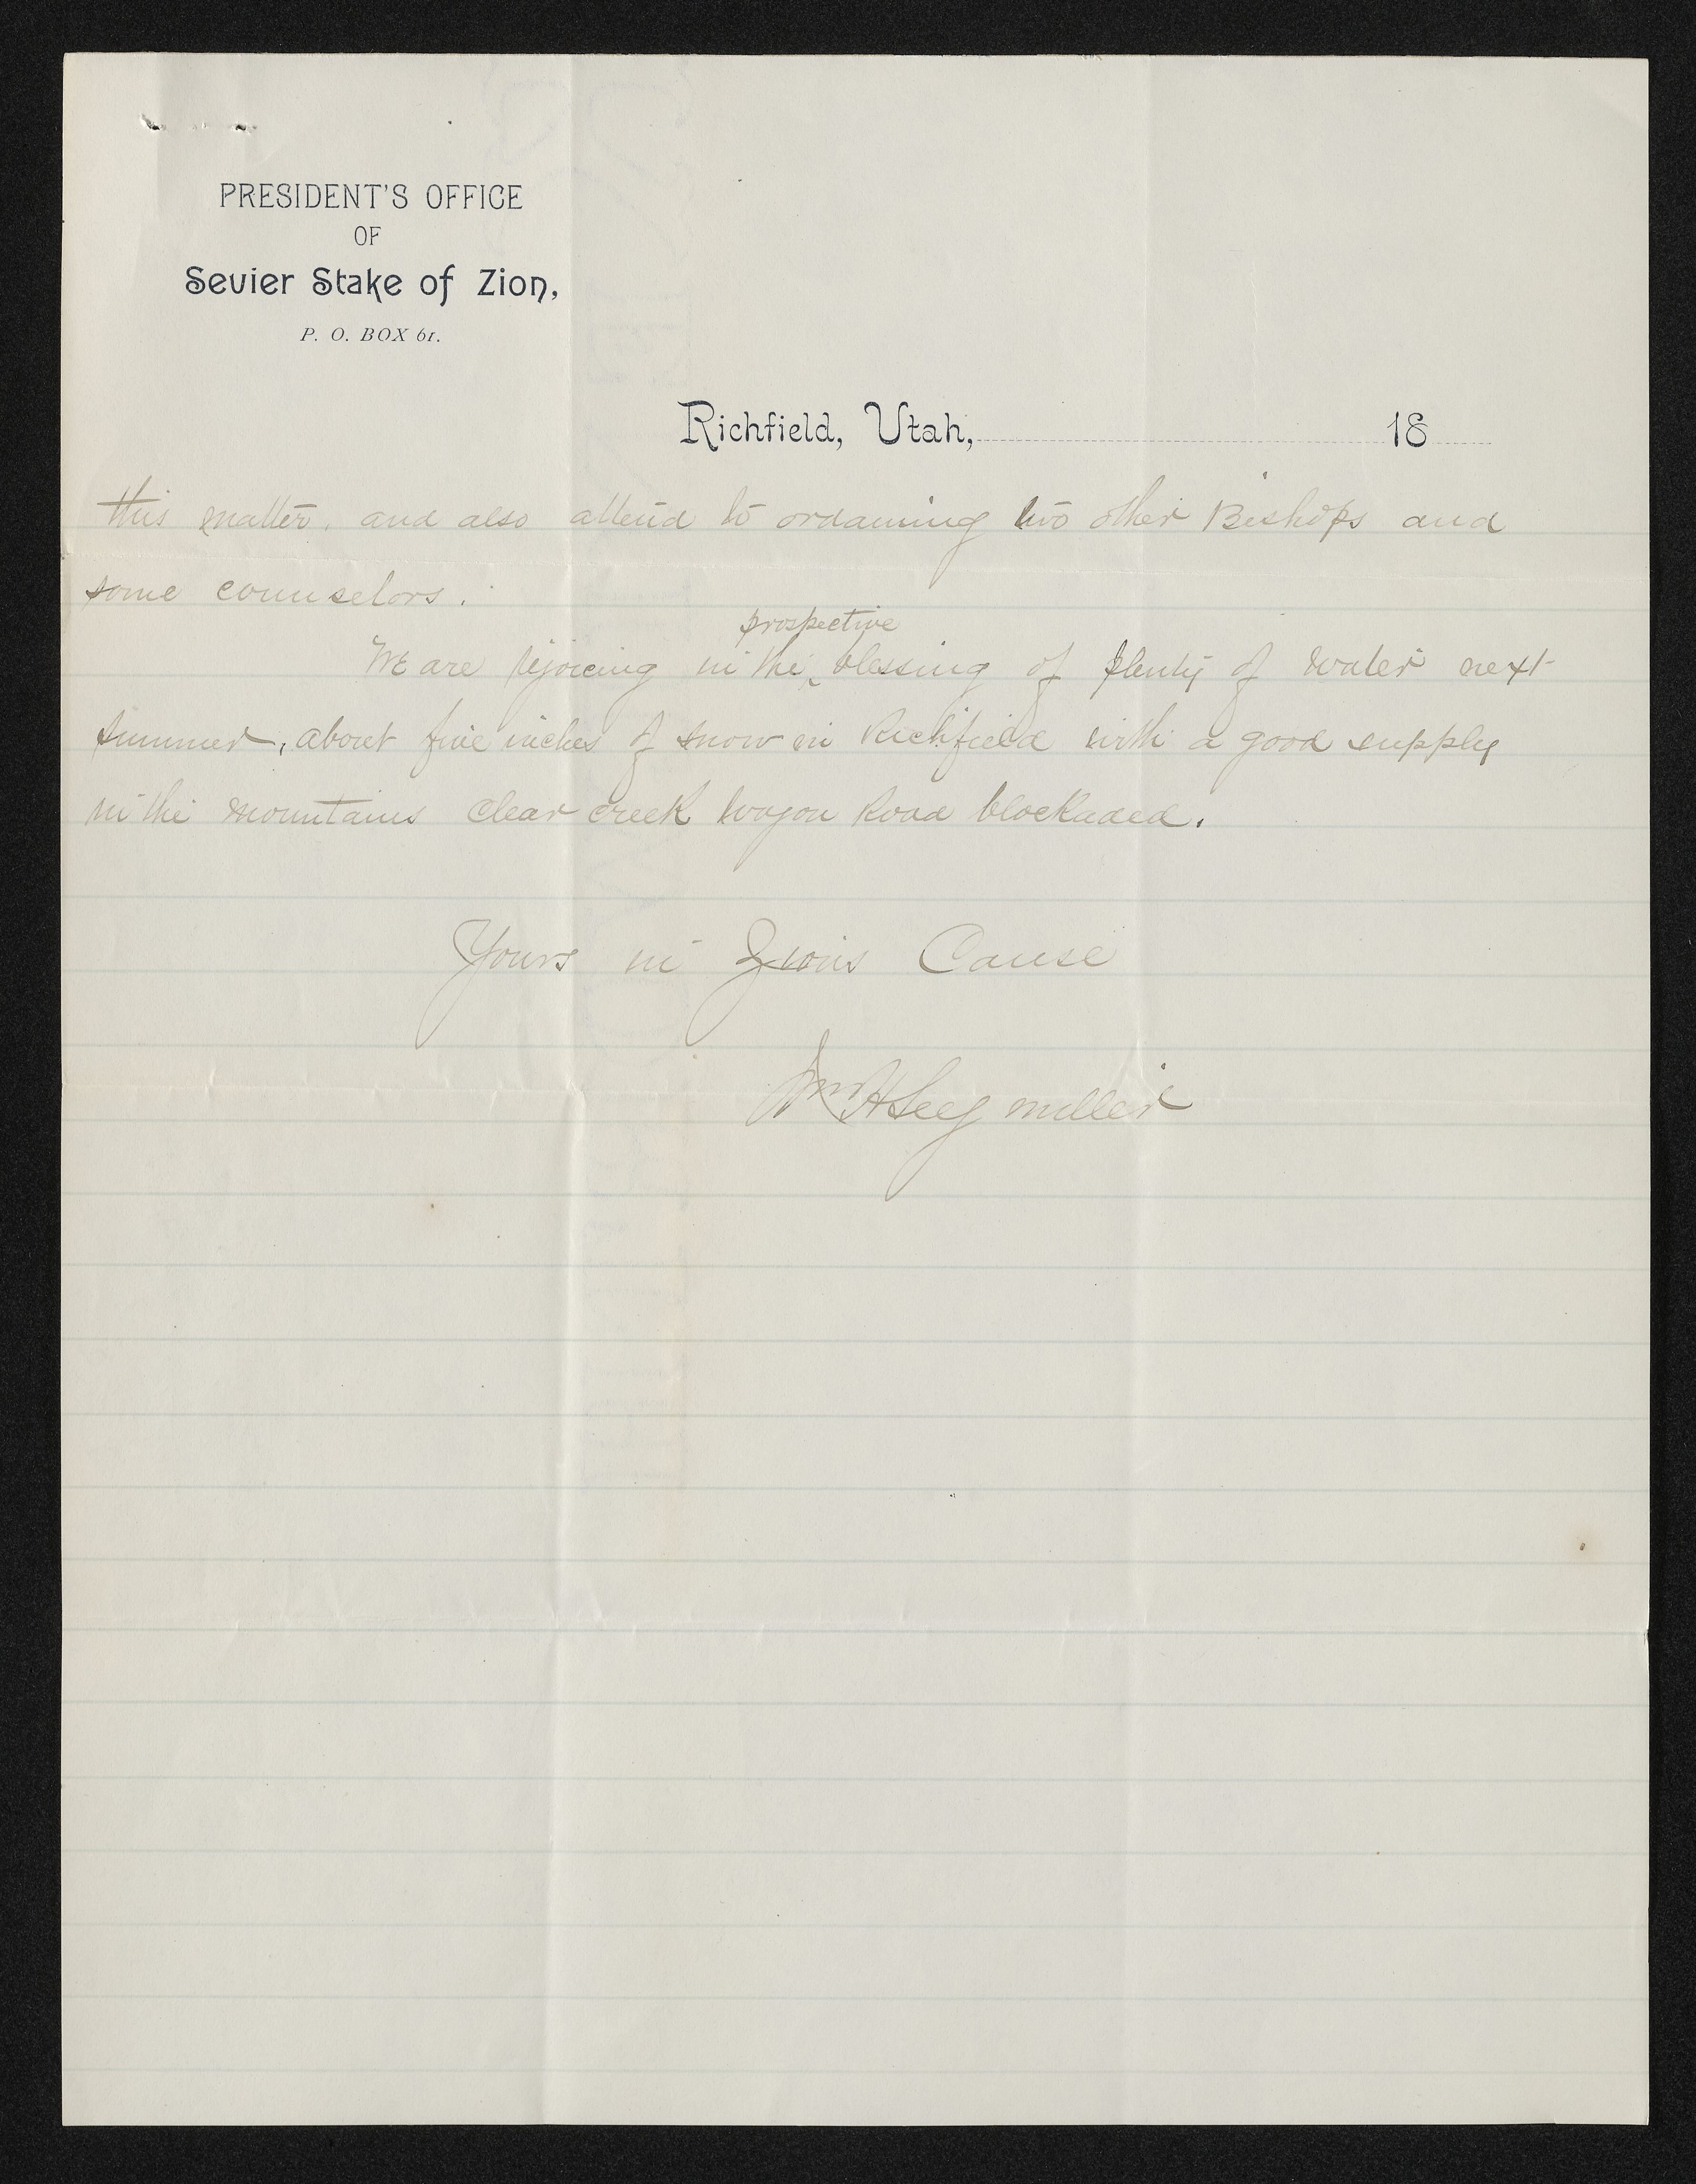 PRESIDENT'S OFFICE
OF
Sevier Stake of Zion,
P. O. BOX 61.
Richfield, Utah, 18
this matter. and also attend to ordaining two other Bishops and
some counselors.
prospective
We are rejoicing in the ‸ blessing of plenty of water next
summer, about five inches of snow in Richfield with a good supply
in the mountains Clear creek wagon Road blockaded.
Yours in Zions Cause
Wm H Seegmiller